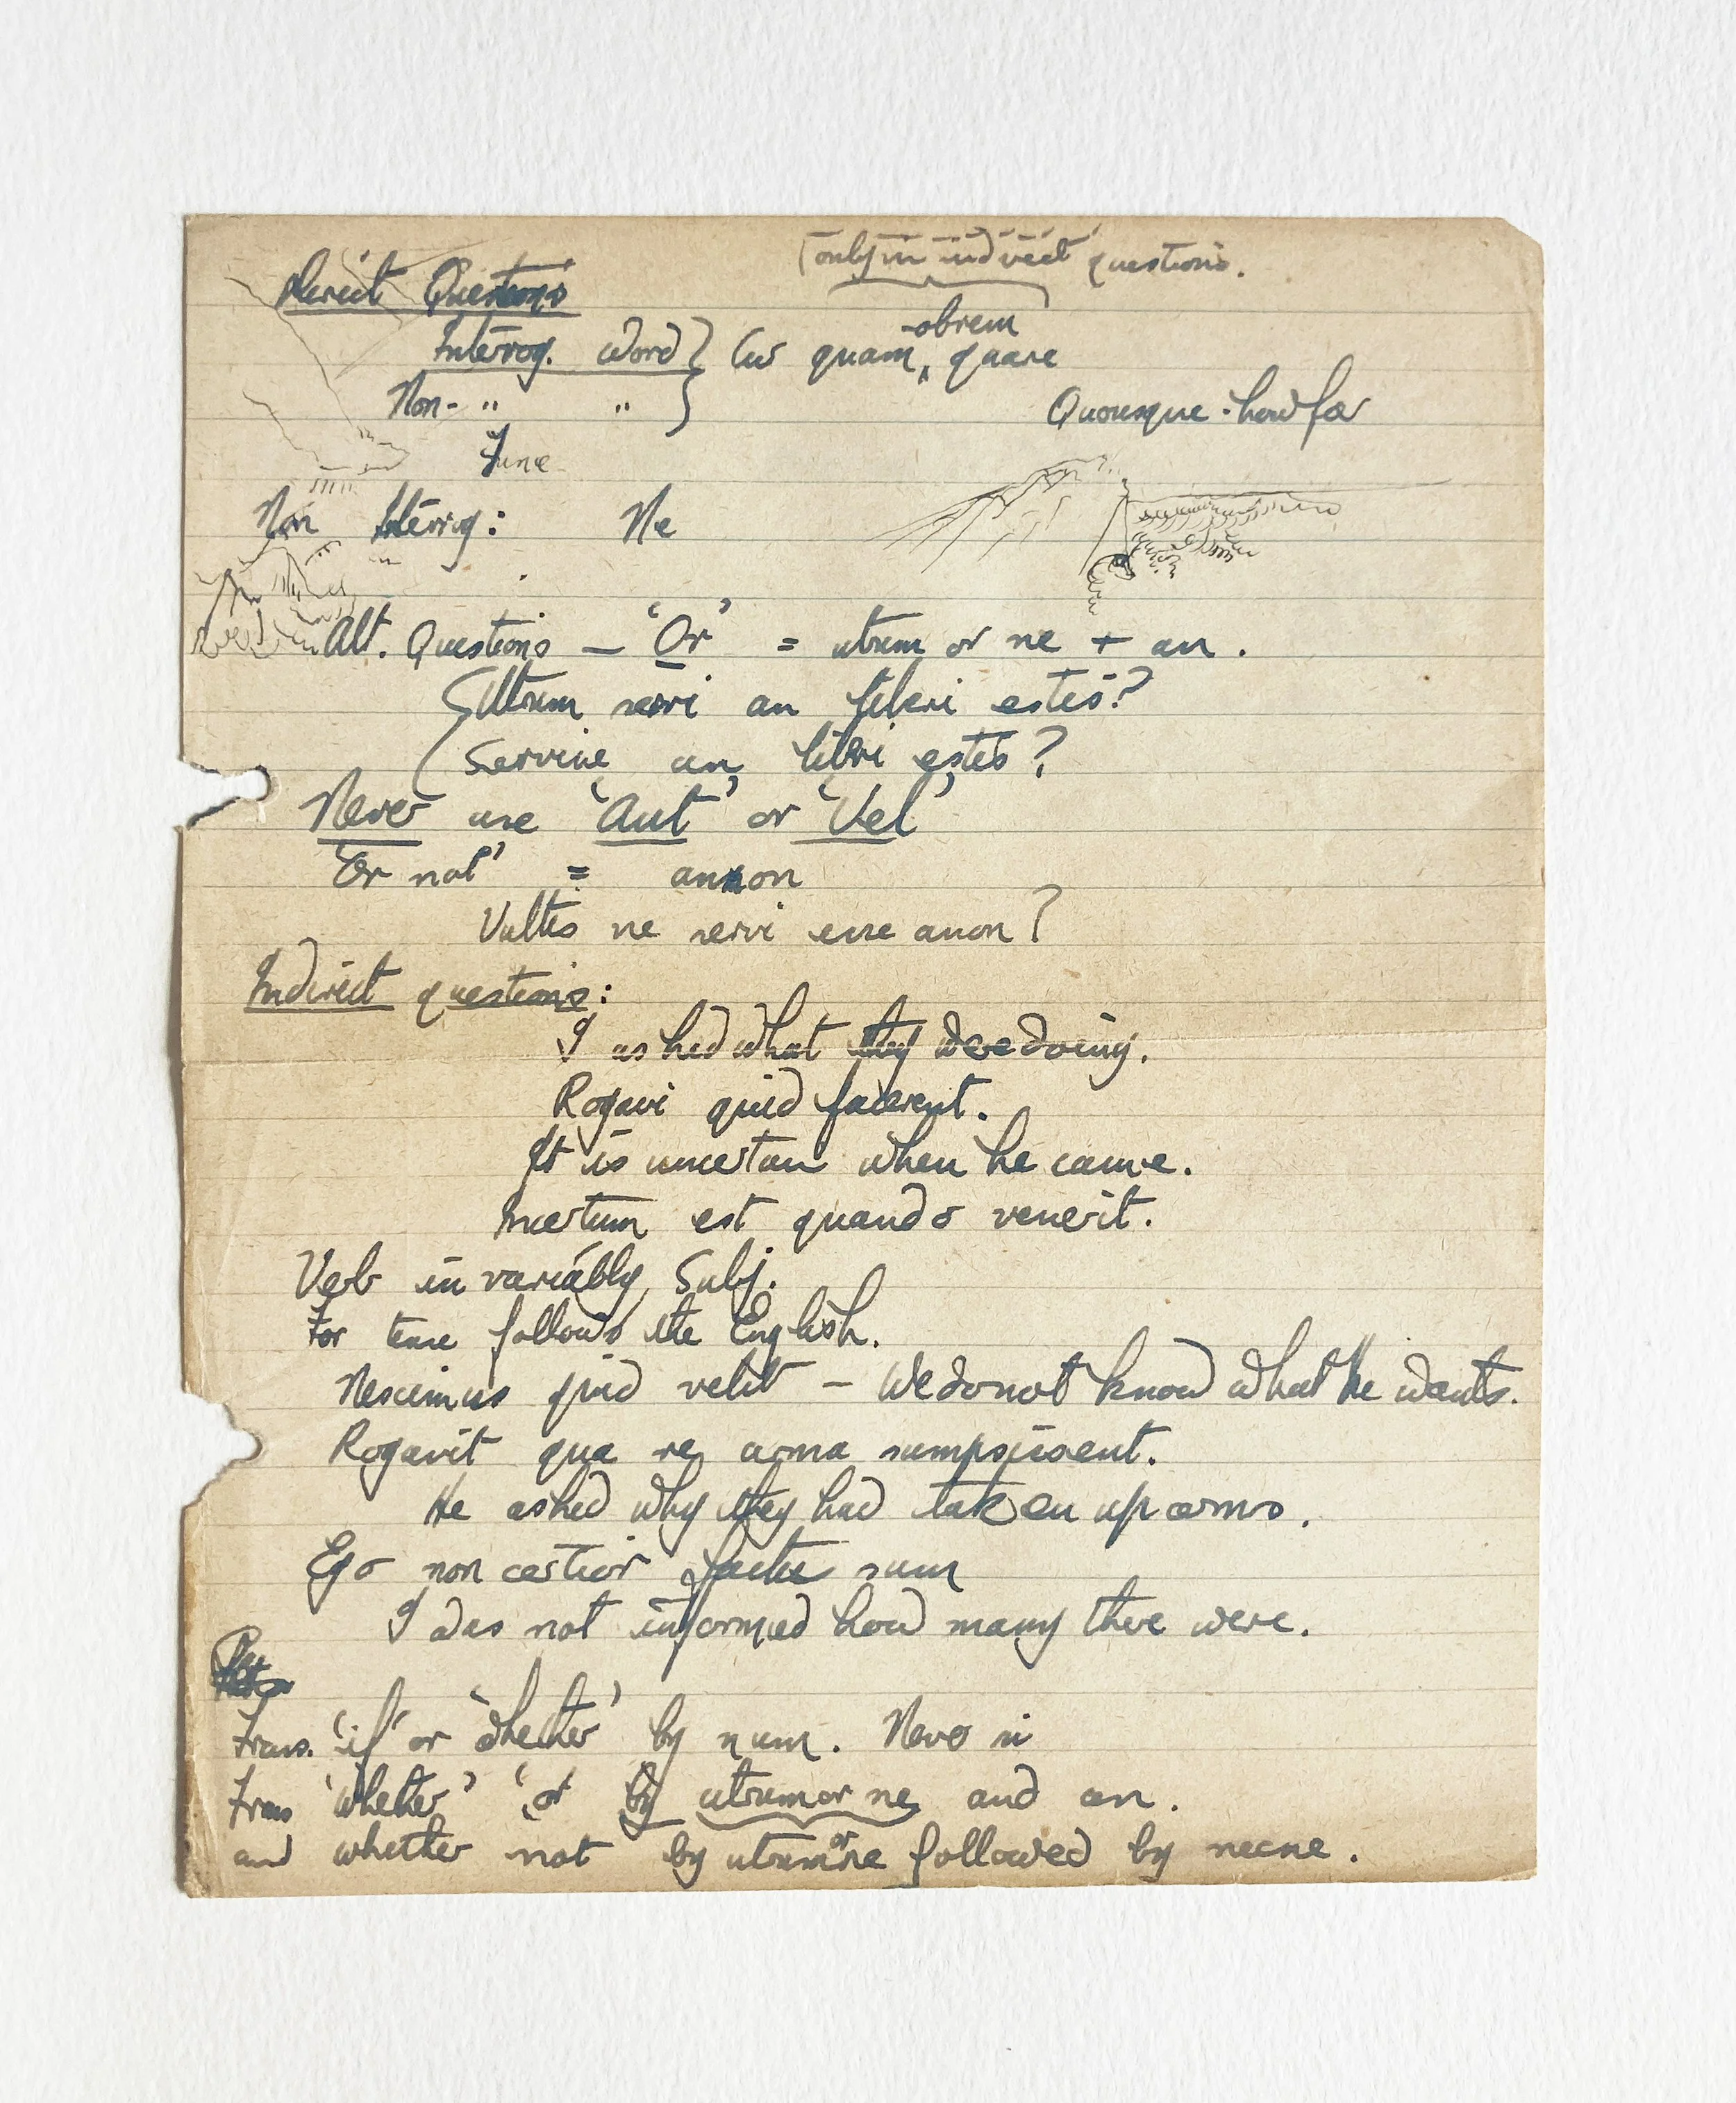 (only in indirect questions.
Direct Questions
-obrem
Interog. word } Cur quam, quare
Non- " "
Quousque - how far
Non Interrog: Ne
Alt. Questions — 'Or' = utrum or ne + an.
Utrum servi an liberi estis?
Servine an libri estis?
Never use 'Aut' or 'Vel'
'Or not' = annon
Vultis ne servi esse anon?
Indirect questions:
I asked what they were doing.
Rogavi quid facerent.
It is uncertain when he came.
Incertum est quando venerit.
Verb invariably Subj.
For tense follows the English.
Nescimus quid velit — We do not know what he wants.
Rogavit qua re arma sumpsissent.
He asked why they had taken up arms.
Ego non certior sum
I was not informed how many there were.
Trans. 'if' or 'whether' by num. Never si
Trans 'whether' 'or' by utrum or ne and an.
and whether not by utrum or ne followed by necne.